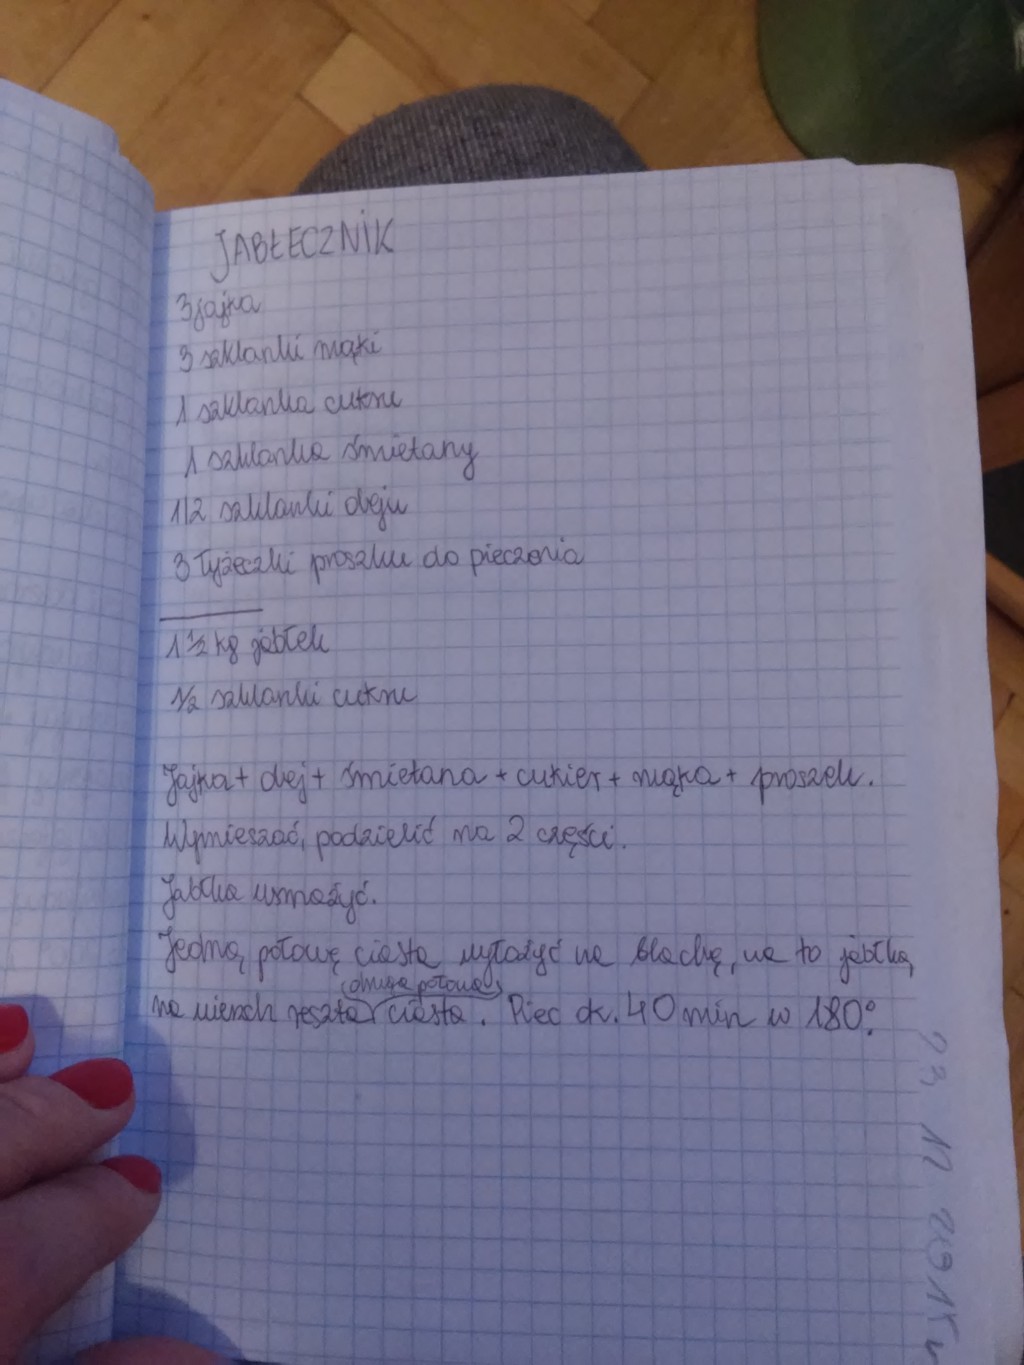 JABŁECZNIK
3 jajka
3 szklanki mąki
1 szklanka cukru
1 szklanka śmietany
1/2 szklanki oleju
3 łyżeczki proszku do pieczenia
1 ½ kg jabłek
½ szklanki cukru
Jajka + olej + śmietana + cukier + mąka + proszek.
Wymieszać, podzielić na 2 części.
Jabłka usmażyć.
Jedną połowę ciasta wyłożyć na blachę, na to jabłka,
(druga połowa)
na wierzch reszta ciasta. Piec ok. 40 min w 180°.
23 12 201